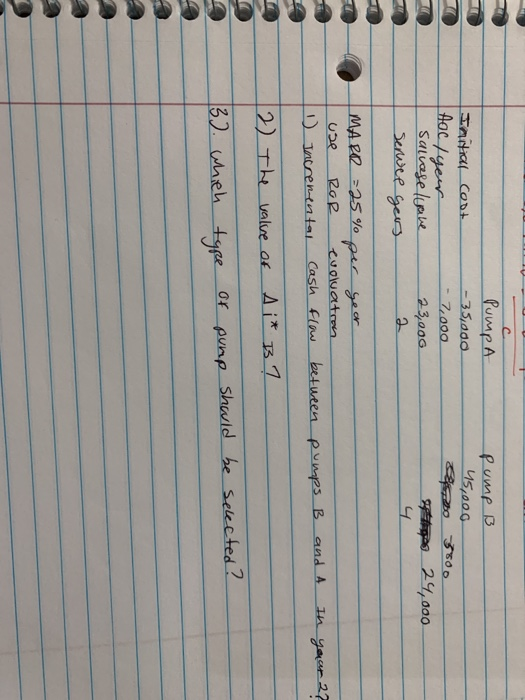 c
Pump A Pump B
Initial Cost -35,000 45,000
Aoc/year -7,000 3800
Salvage/value 23,000 24,000
Service years 2 4
MARR = 25% per year
use ROR evaluation
1) Incremental cash flow between pumps B and A In year 2?
2) The value of Δi* B?
3) which type of pump should be selected?